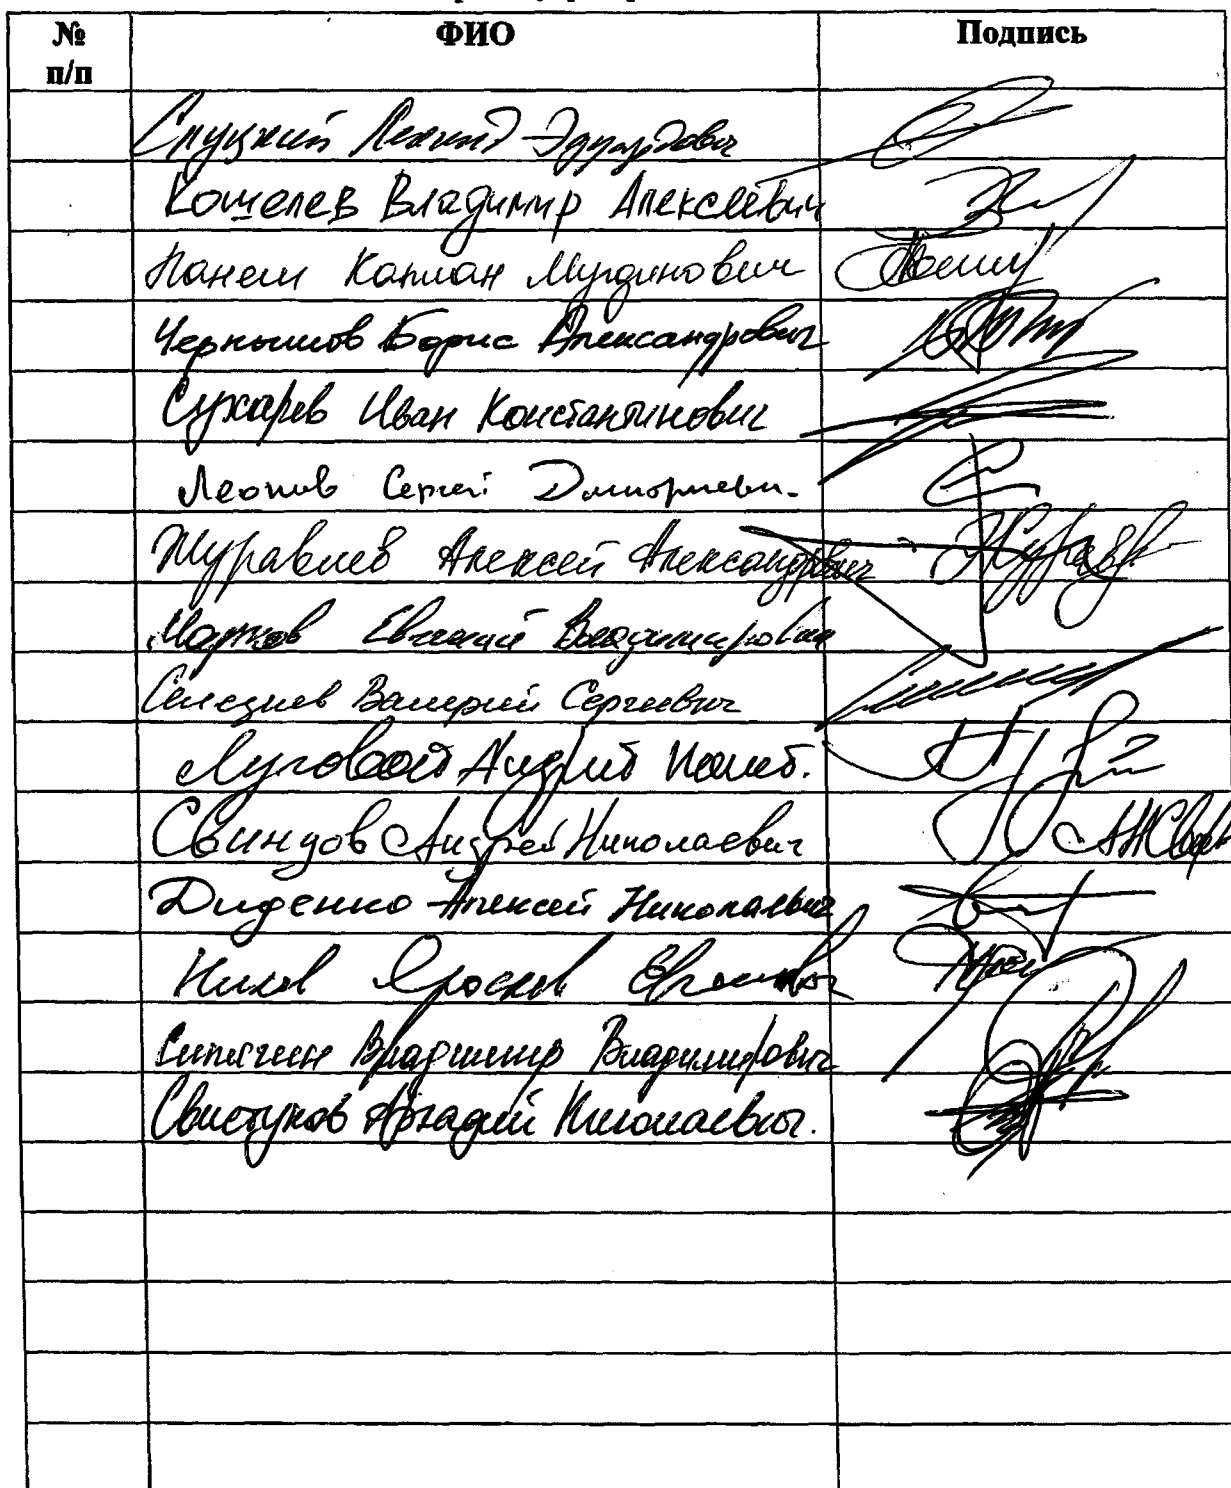 № п/п ФИО Подпись
Слуцкий Леонид Эдуардович
Кошелев Владимир Алексеевич
Панеш Каплан Мугдинович
Чернышов Борис Александрович
Сухарев Иван Константинович
Леонов Сергей Дмитриевич
Журавлев Алексей Александрович
Марков Евгений Владимирович
Селезнев Валерий Сергеевич
Луговой Андрей Конст.
Свинцов Андрей Николаевич
Диденко Алексей Николаевич
Нилов Ярослав Евгеньевич
Сипягин Владимир Владимирович
Свистунов Аркадий Николаевич.